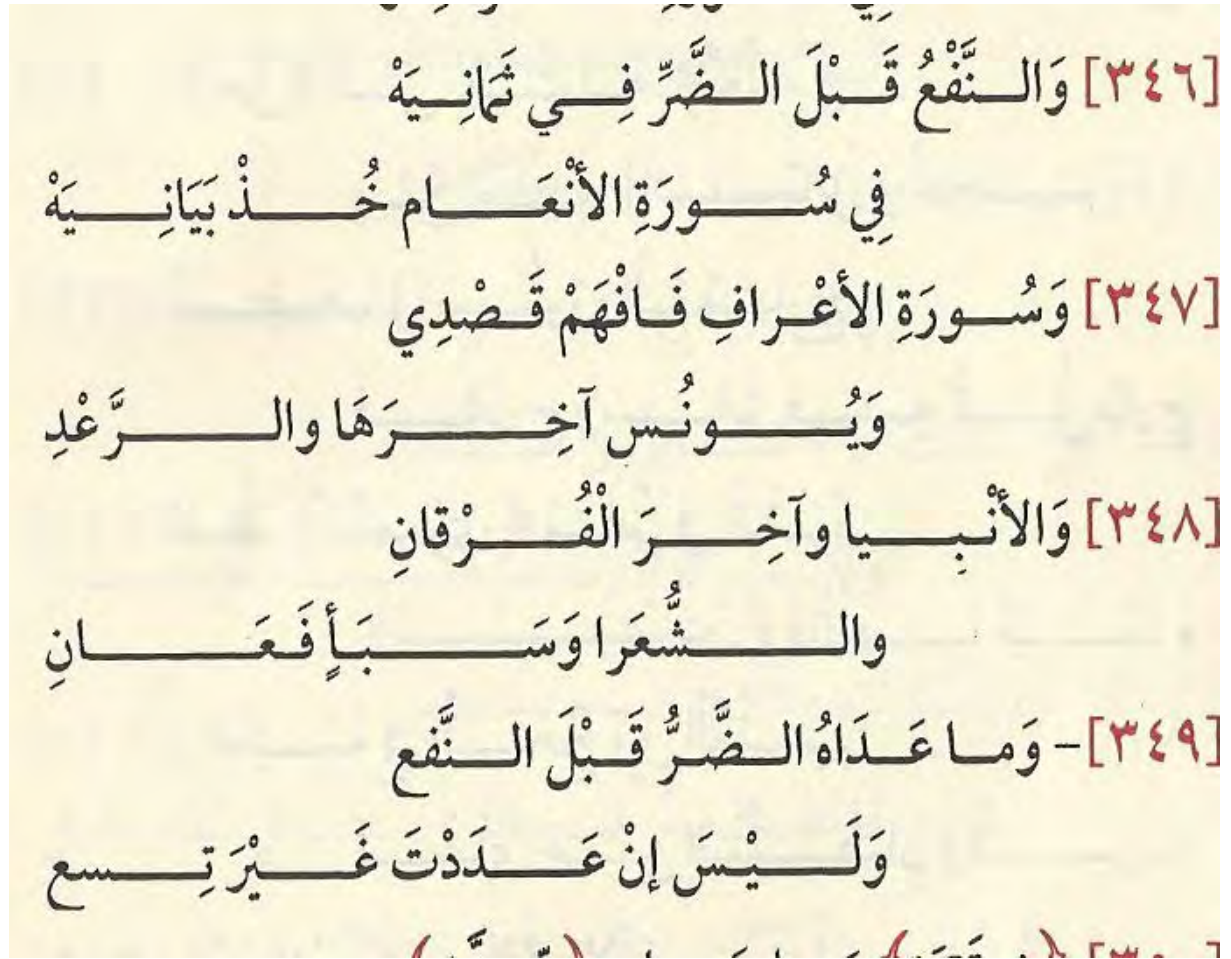 [٣٤٦] وَالنَّفْعُ قَبْلَ الضَّرِّ فِي ثَمَانِيَهْ
فِي سُورَةِ الأنْعَام خُذْ بَيَانِيَهْ
[٣٤٧] وَسُورَةِ الأعْرافِ فَافْهَمْ قَصْدِي
وَيُونُس آخِرَهَا والرَّعْدِ
[٣٤٨] وَالأنْبِيا وآخِرَ الْفُرْقانِ
والشُّعَرا وَسَبَأٍ فَعَانِ
[٣٤٩] – وَما عَدَاهُ الضَّرُّ قَبْلَ النَّفع
وَلَيْسَ إنْ عَدَدْتَ غَيْرَ تِسع